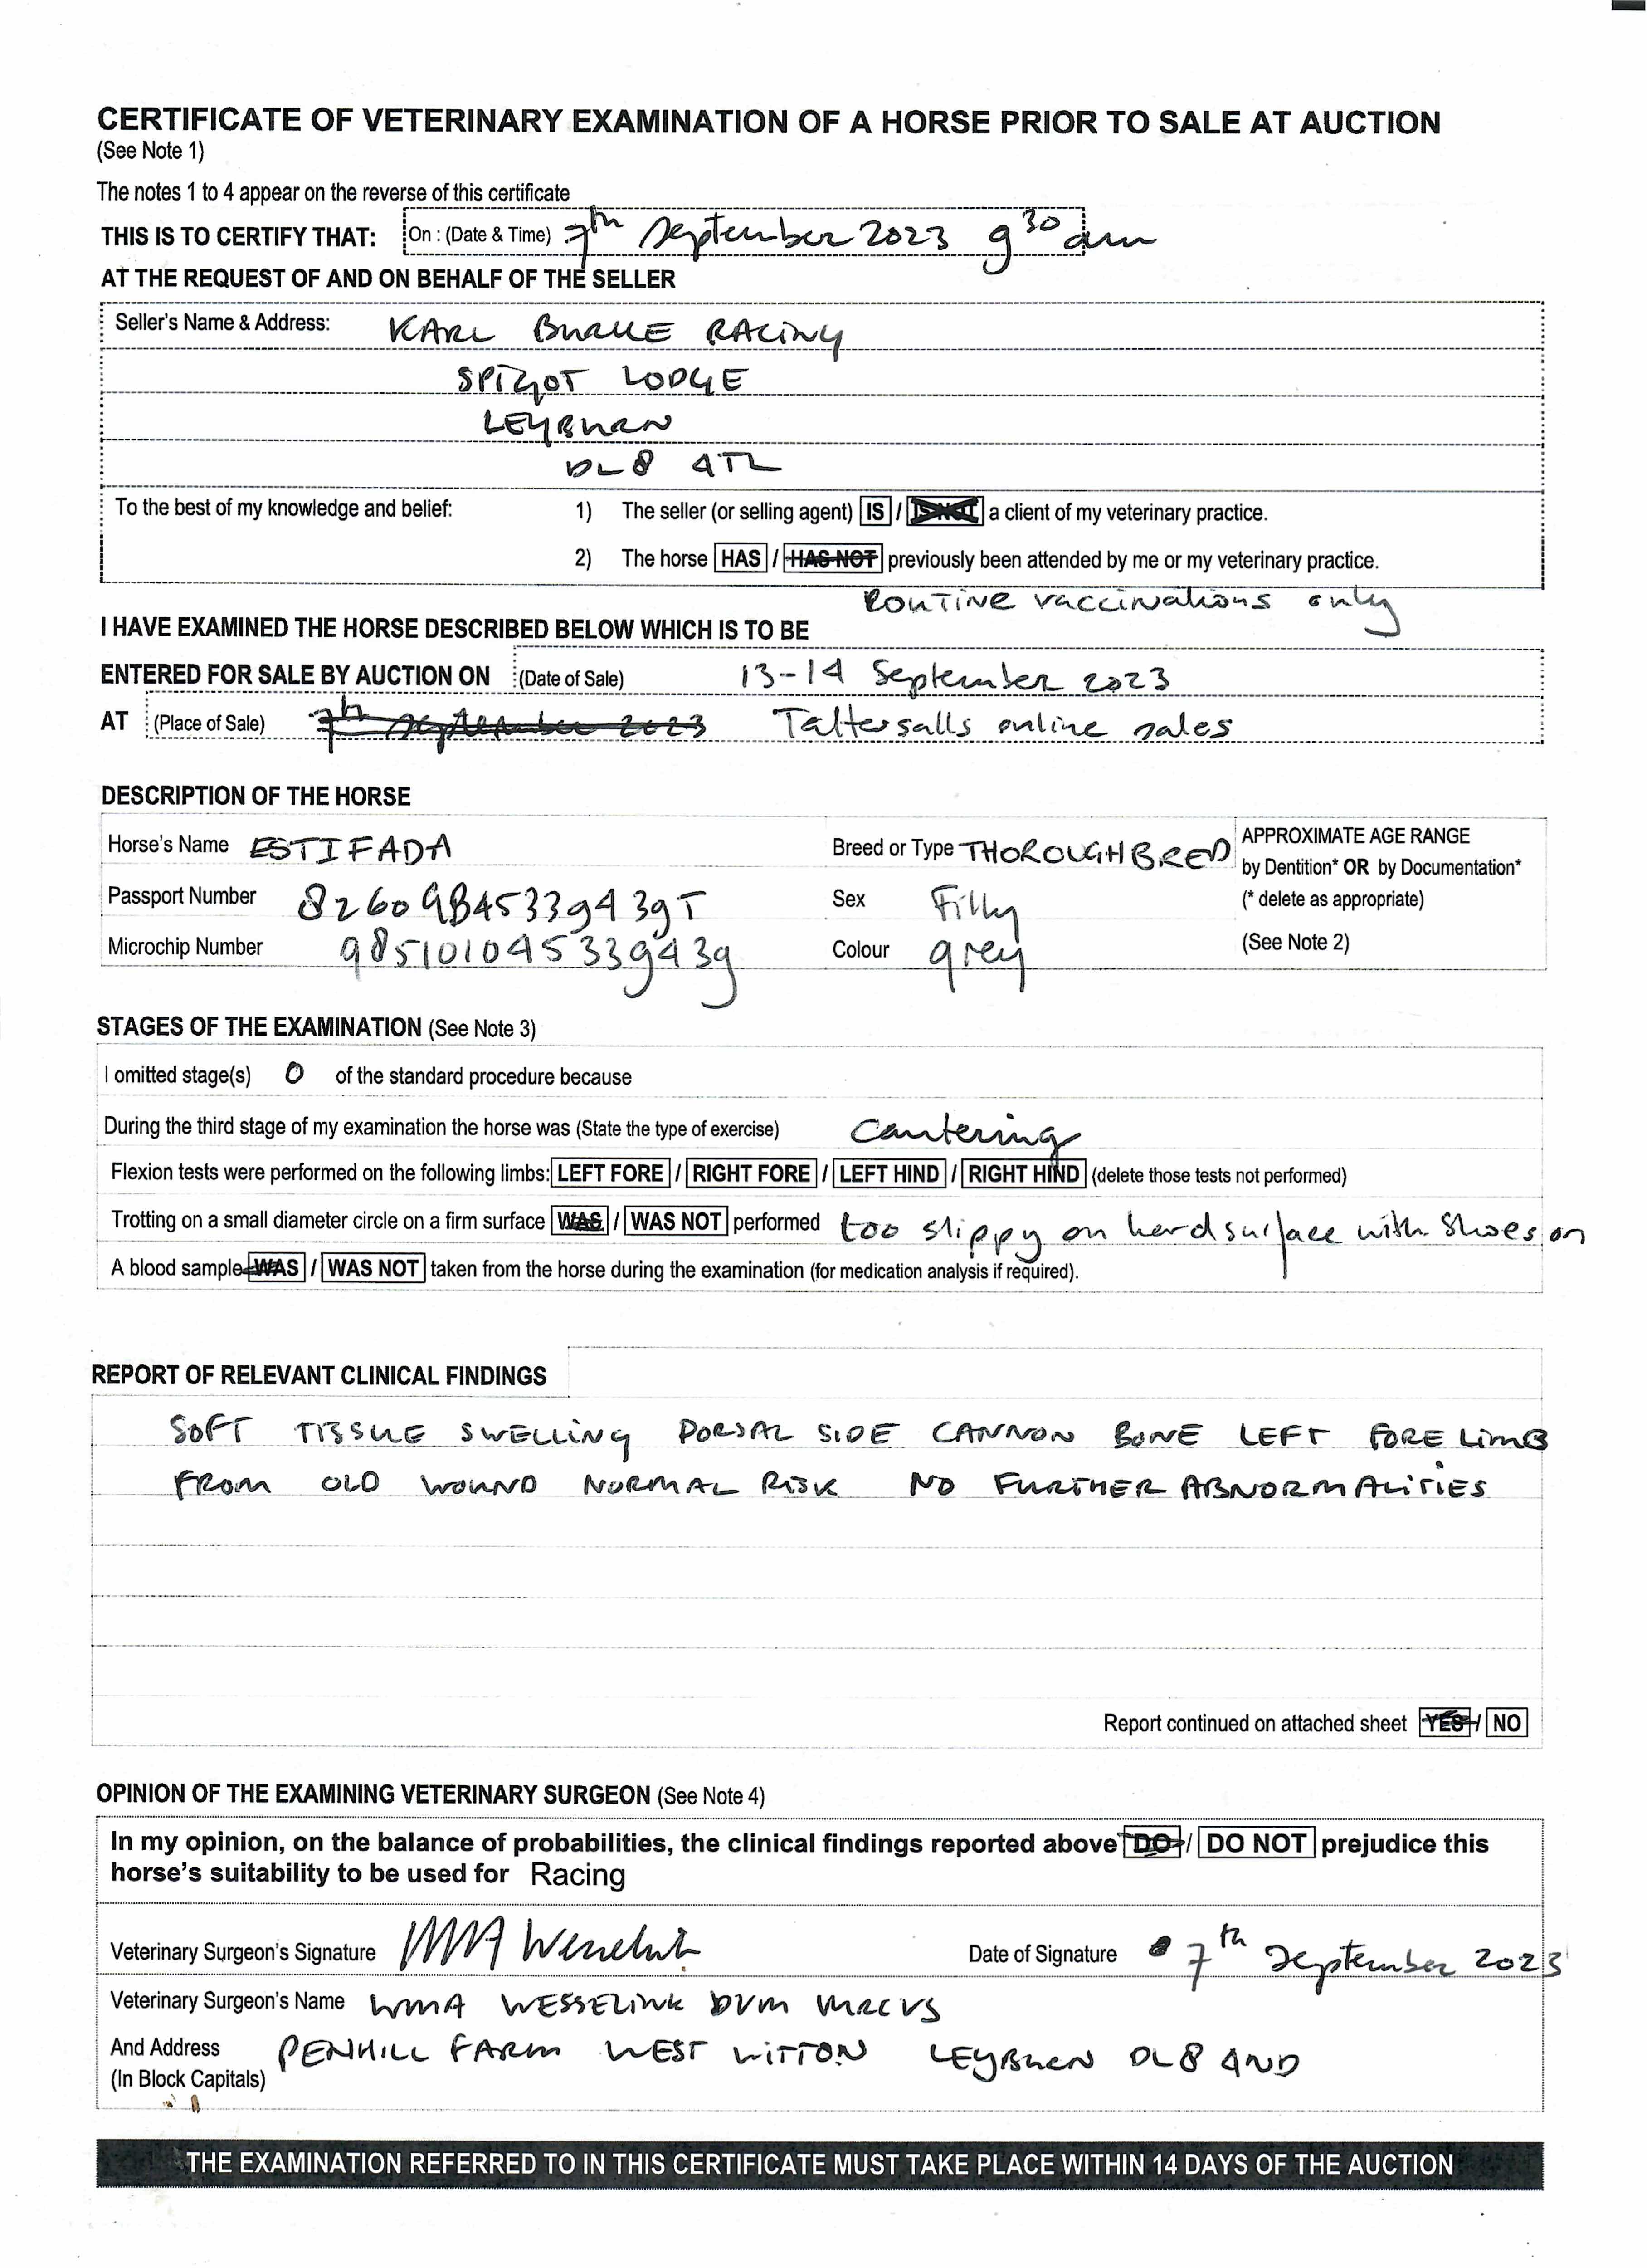 CERTIFICATE OF VETERINARY EXAMINATION OF A HORSE PRIOR TO SALE AT AUCTION
(See Note 1)
The notes 1 to 4 appear on the reverse of this certificate
THIS IS TO CERTIFY THAT: On : (Date & Time) 7th September 2023 9 30 am
AT THE REQUEST OF AND ON BEHALF OF THE SELLER
Seller's Name & Address: KARL BURKE RACING
SPIGOT LODGE
LEYBURN
DL8 4TL
To the best of my knowledge and belief: 1) The seller (or selling agent) IS / IS NOT a client of my veterinary practice.
2) The horse HAS / HAS NOT previously been attended by me or my veterinary practice.
Routine vaccinations only
I HAVE EXAMINED THE HORSE DESCRIBED BELOW WHICH IS TO BE
ENTERED FOR SALE BY AUCTION ON (Date of Sale) 13-14 September 2023
AT (Place of Sale) 7th September 2023 Tattersalls online sales
DESCRIPTION OF THE HORSE
Horse's Name ESTIFADA Breed or Type THOROUGHBRED APPROXIMATE AGE RANGE
by Dentition* OR by Documentation*
Passport Number 82609845339439T Sex Filly (* delete as appropriate)
Microchip Number 985101045339439 Colour grey (See Note 2)
STAGES OF THE EXAMINATION (See Note 3)
I omitted stage(s) 0 of the standard procedure because
During the third stage of my examination the horse was (State the type of exercise) cantering
Flexion tests were performed on the following limbs: LEFT FORE / RIGHT FORE / LEFT HIND / RIGHT HIND (delete those tests not performed)
Trotting on a small diameter circle on a firm surface WAS / WAS NOT performed too slippy on hard surface with shoes on
A blood sample WAS / WAS NOT taken from the horse during the examination (for medication analysis if required).
REPORT OF RELEVANT CLINICAL FINDINGS
SOFT TISSUE SWELLING DORSAL SIDE CANNON BONE LEFT FORE LIMB
FROM OLD WOUND NORMAL RISK NO FURTHER ABNORMALITIES
Report continued on attached sheet YES / NO
OPINION OF THE EXAMINING VETERINARY SURGEON (See Note 4)
In my opinion, on the balance of probabilities, the clinical findings reported above DO / DO NOT prejudice this
horse's suitability to be used for Racing
Veterinary Surgeon's Signature WMA Wesselink Date of Signature 7th September 2023
Veterinary Surgeon's Name WMA WESSELINK DVM MRCVS
And Address PENHILL FARM WEST WITTON LEYBURN DL8 4ND
(In Block Capitals)
THE EXAMINATION REFERRED TO IN THIS CERTIFICATE MUST TAKE PLACE WITHIN 14 DAYS OF THE AUCTION